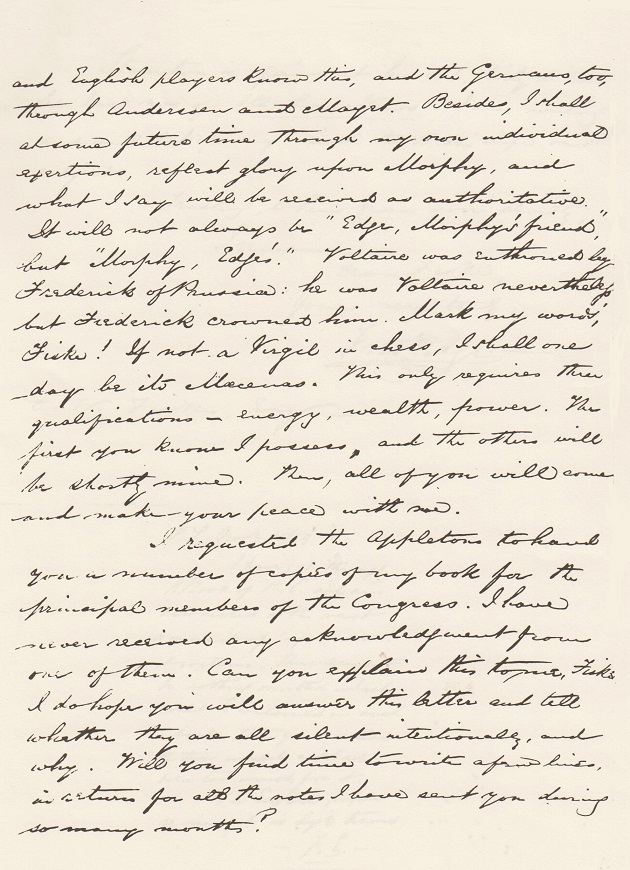 and English players know this, and the Germans, too,
through Anderssen and Mayet. Besides, I shall
at some future time through my own individual
exertions, reflect glory upon Morphy, and
what I say will be received as authoritative.
It will not always be "Edge, Morphy's friend",
but "Morphy, Edge's." Voltaire was enthroned by
Frederick of Prussia: he was Voltaire nevertheless
but Frederick crowned him. Mark my words,
Fiske! If not a Virgil in chess, I shall one
day be its Mæcenas. This only requires three
qualifications – energy, wealth, power. The
first you know I possess, and the others will
be shortly mine. Then, all of you will come
and make your peace with me.
I requested the Appletons to hand
you a number of copies of my book for the
principal members of the Congress. I have
never received any acknowledgment from
one of them. Can you explain this to me, Fiske
I do hope you will answer this letter and tell
whether they are all silent intentionally, and
why. Will you find time to write a few lines,
in return for all the notes I have sent you during
so many months?